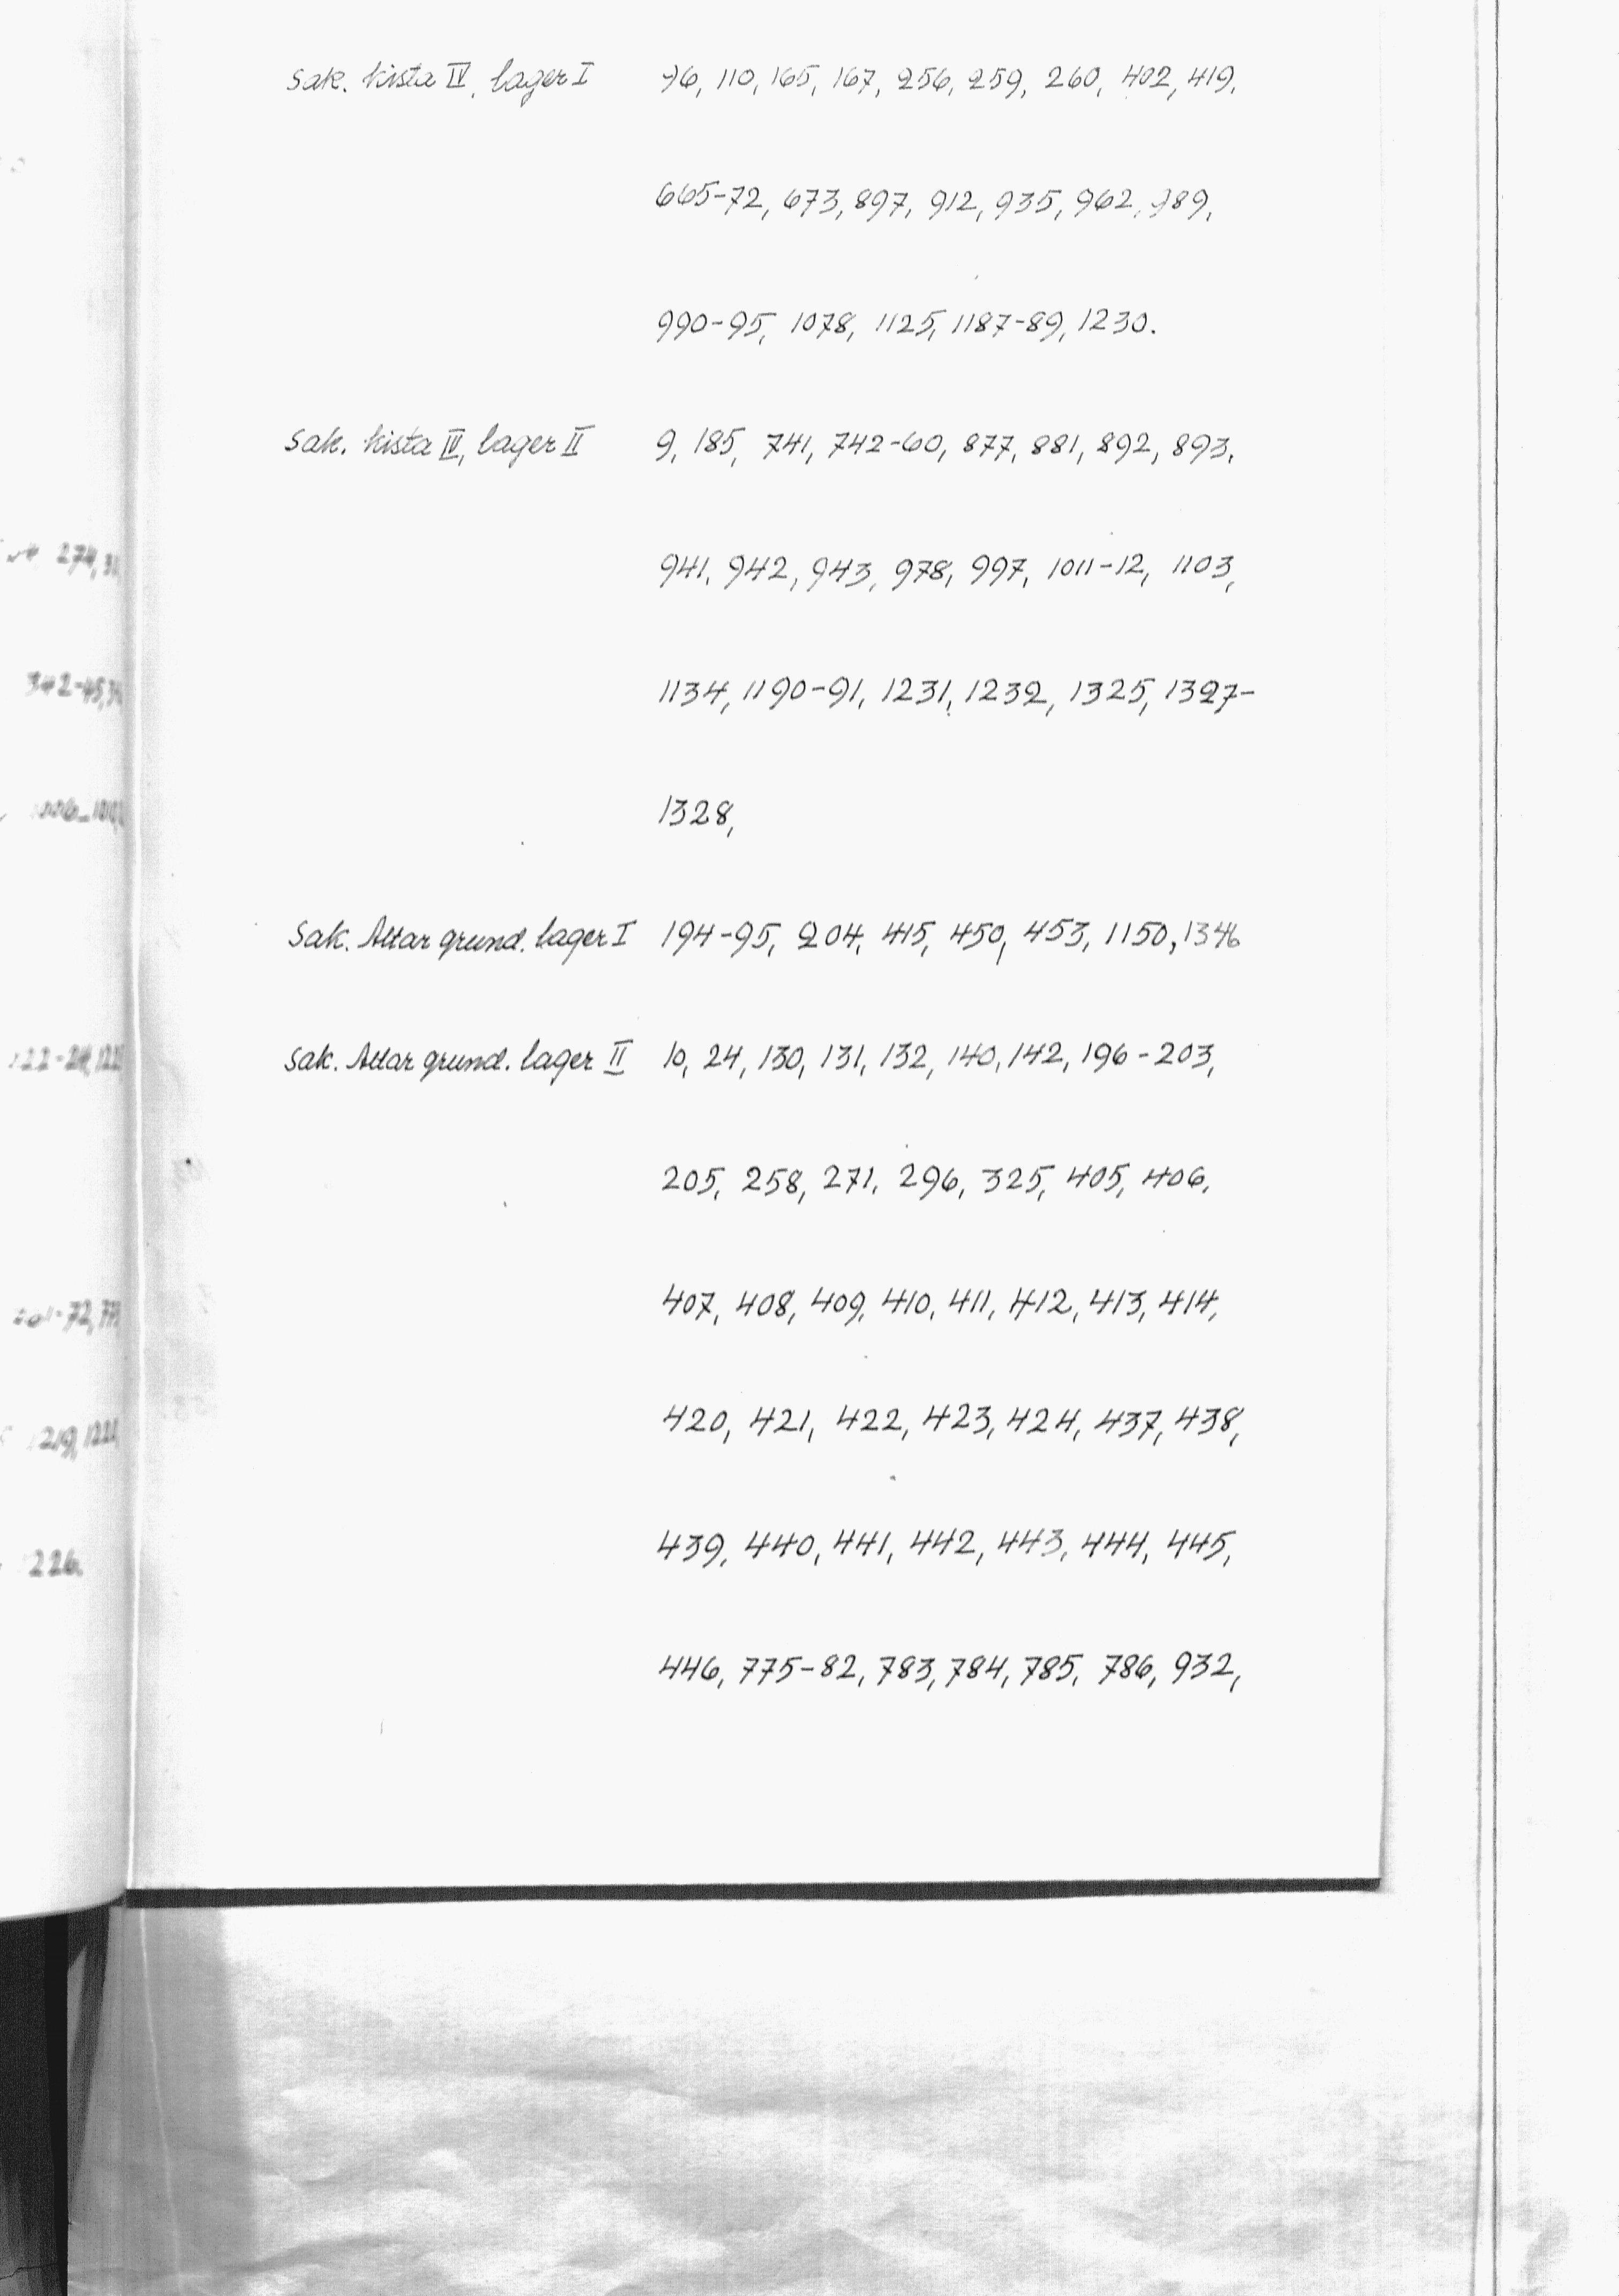 Sak. kista IV, lager I 76, 110, 165, 167, 256, 259, 260, 402, 419,
665-72, 673, 897, 912, 935, 962, 989,
990-95, 1078, 1125, 1187-89, 1230.
Sak. kista IV, lager II 9, 185, 741, 742-60, 877, 881, 892, 893,
941, 942, 943, 978, 997, 1011-12, 1103,
1134, 1190-91, 1231, 1232, 1325, 1327-
1328,
Sak. Altar grund. lager I 194-95, 204, 415, 450, 453, 1150, 1346
Sak. Altar grund. lager II 10, 24, 130, 131, 132, 140, 142, 196-203,
205, 258, 271, 296, 325, 405, 406,
407, 408, 409, 410, 411, 412, 413, 414,
420, 421, 422, 423, 424, 437, 438,
439, 440, 441, 442, 443, 444, 445,
446, 775-82, 783, 784, 785, 786, 932,
274,
342-45,
226.